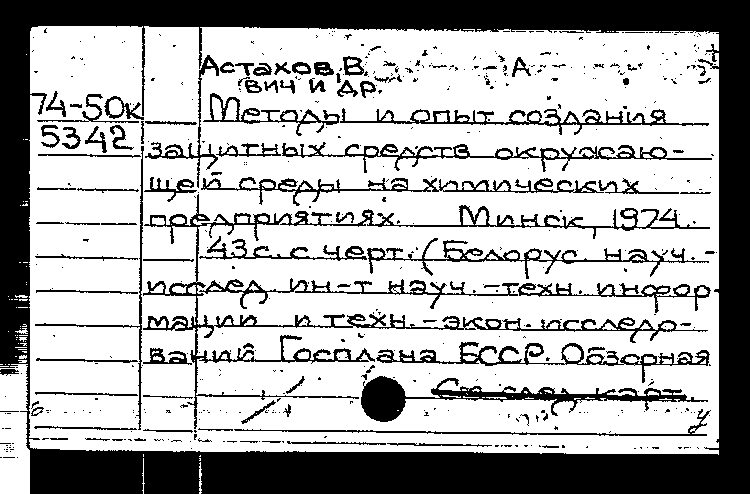 Астахов, В. А
вич и др.
74-50к Методы и опыт создания
5342 защитных средств окружаю-
щей среды на химических
предприятиях. Минск, 1974.
43 с. с черт. (Белорус. науч.-
исслед. ин-т науч.-техн. инфор-
мации и техн.-экон. исследо-
ваний Госплана БССР. Обзорная
См след. карт.
у